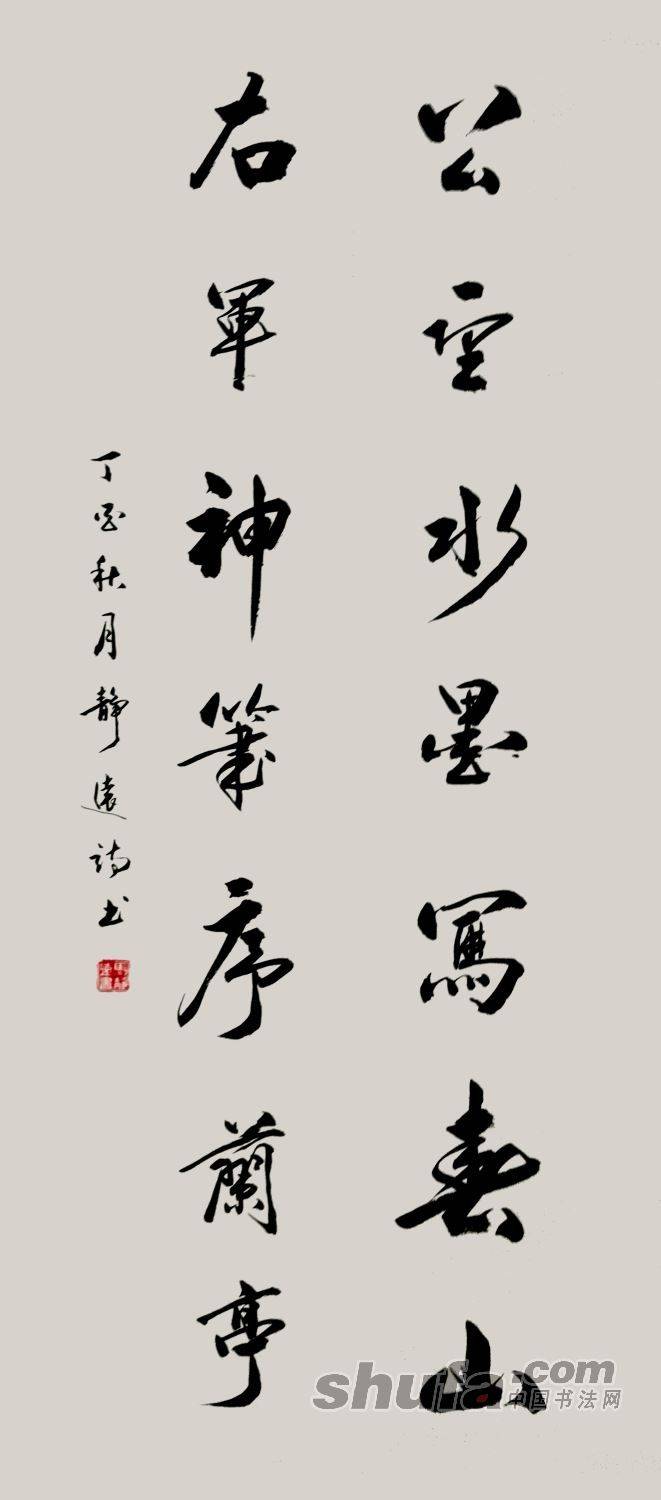 公望水墨寫春山
右軍神筆序蘭亭
丁酉秋月靜遠詩书
shufa.com
中国书法网